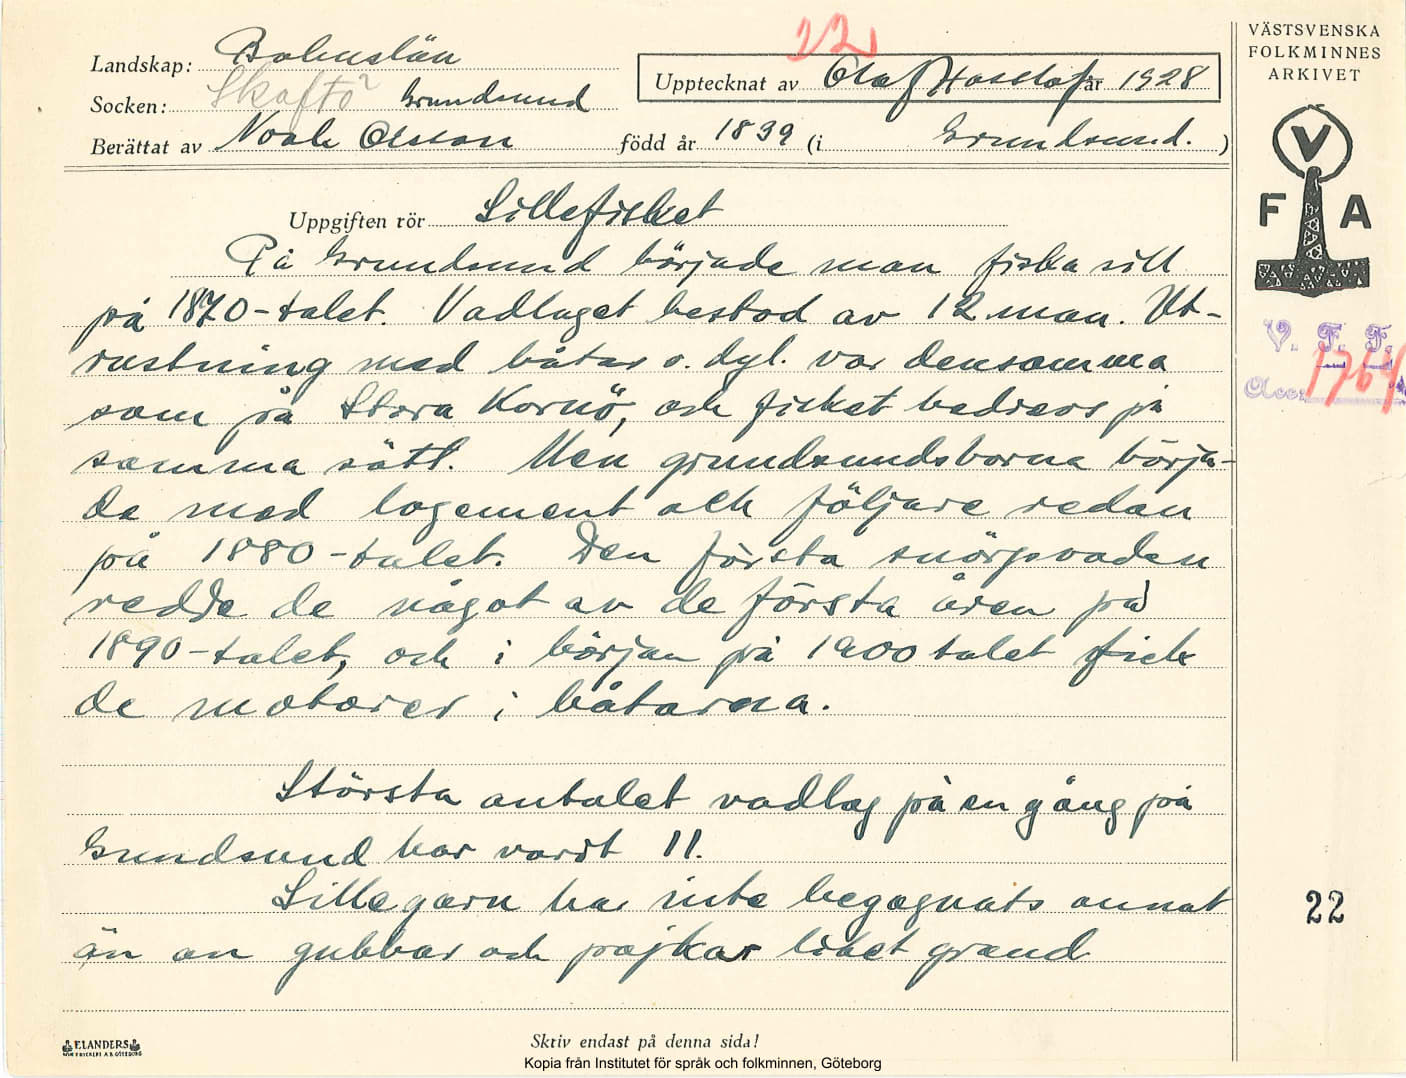 22
Landskap: Bohuslän
Upptecknat av Olof Hasslöf år 1928
Socken: Skaftö Grundsund
Berättat av Noak Olsson född år 1839 (i Grundsund.)
VÄSTSVENSKA
FOLKMINNES
ARKIVET
V
F A
V. F. F.
Acc. 1764
Uppgiften rör Sillefisket
På Grundsund började man fiska sill
på 1870-talet. Vadlaget bestod av 12 man. Ut-
rustning med båtar o. dyl. var densamma
som på Stora Kornö, och fisket bedrevs på
samma sätt. Men grundsundsborna börja-
de med logement och följare redan
på 1880-talet. Den första snörpvaden
redde de något av de första åren på
1890-talet, och i början på 1900 talet fick
de motorer i båtarna.
Största antalet vadlag på en gång på
Grundsund har varit 11.
Sillegarn har inte begagnats annat
än av gubbar och pojkar litet grand
22
F. LANDERS
Skriv endast på denna sida!
Kopia från Institutet för språk och folkminnen, Göteborg